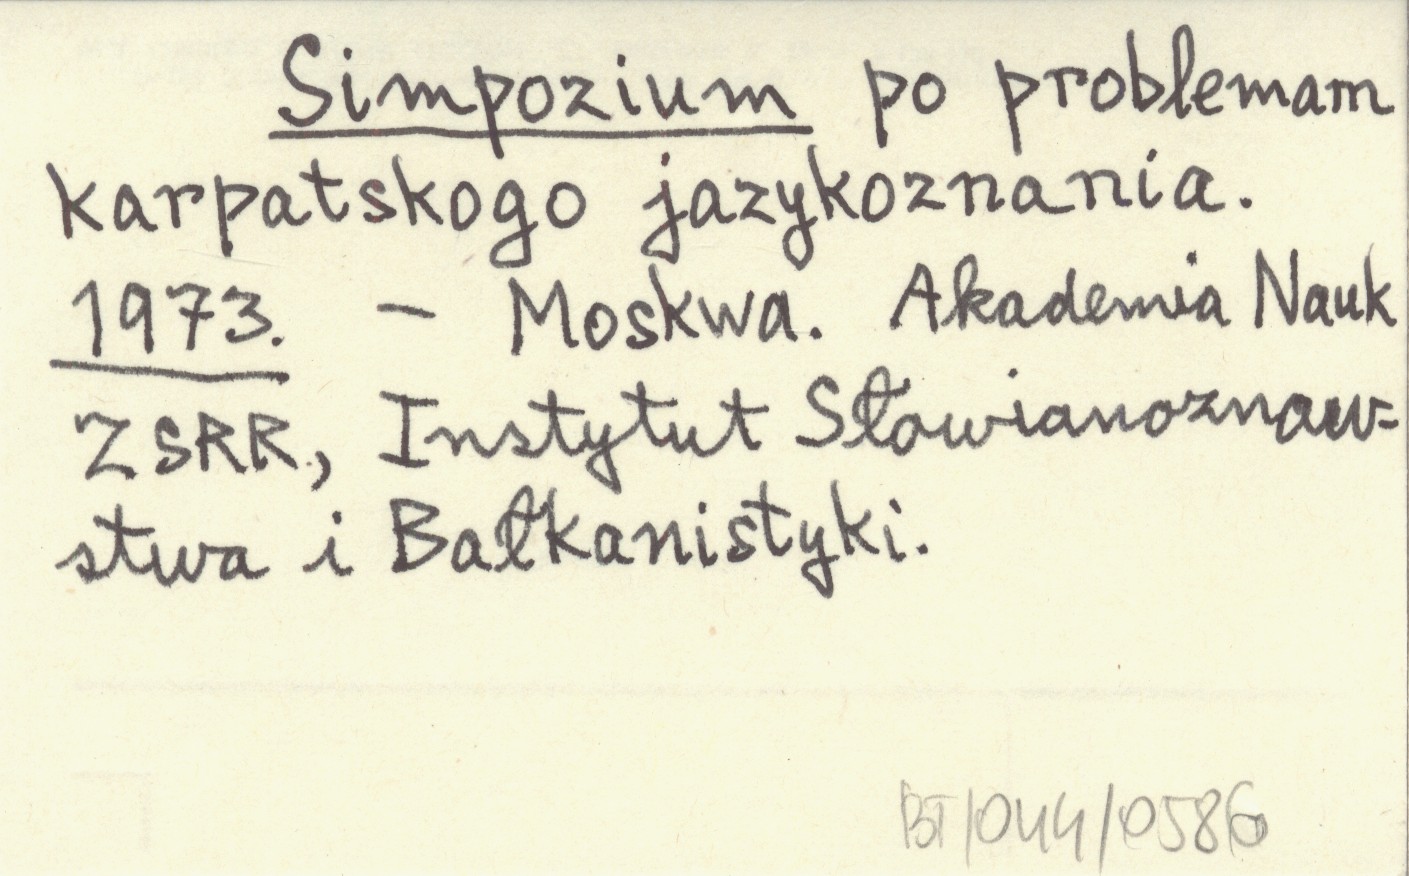 Simpozium po problemam
karpatskogo jazykoznania.
1973. - Moskwa. Akademia Nauk
ZSRR, Instytut Słowianoznaw-
stwa i Bałkanistyki.
BT/044/0586